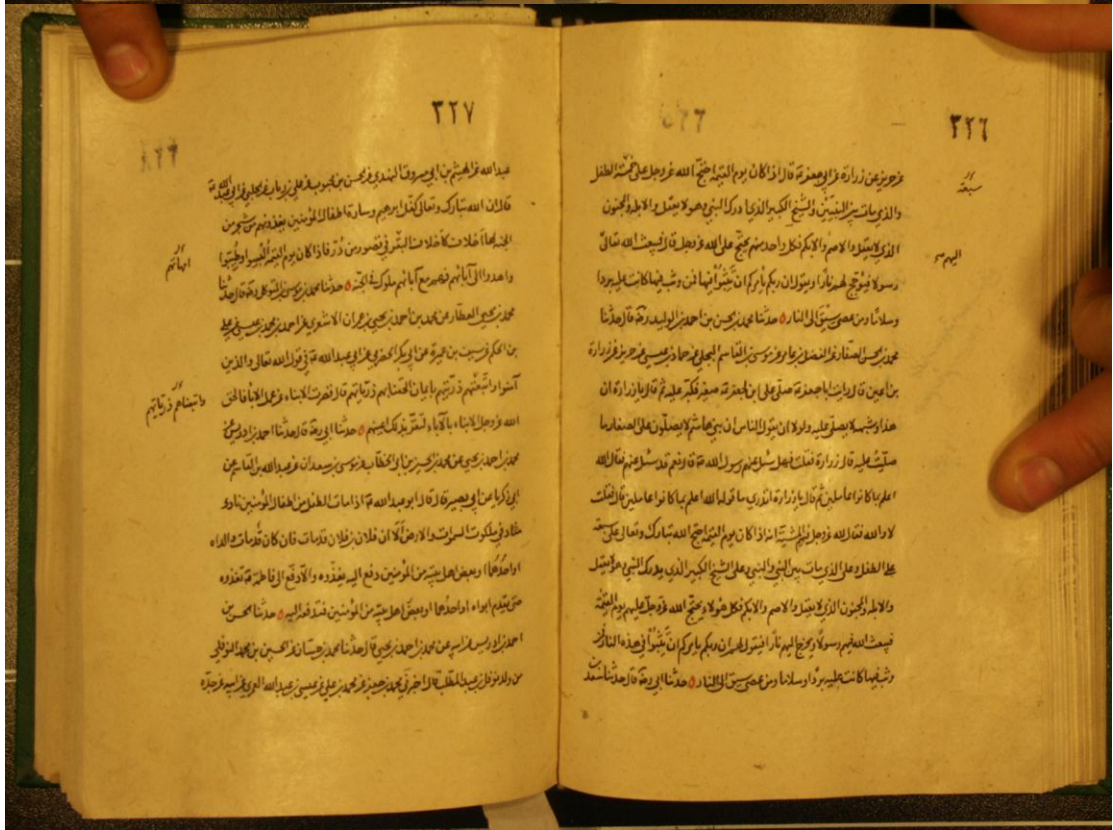 ٣٢٦
حريز عن زرارة عن ابي جعفر ع قال اذا كان يوم القيمة احتج الله عز وجل على خمسة الطفل
والذي مات بين النبيين والشيخ الكبير الذي ادرك النبي وهو لا يعقل والابله والمجنون
الذي لا يعقل والاصم والابكم فكل واحد منهم يحتج على الله عز وجل قال فيبعث الله تعالى
رسولا فيؤجج لهم نارا ويقول ان ربكم يأمركم ان تثبوا فيها فمن وثب فيها كانت عليه بردا
وسلاما ومن عصى سيق الى النار حدثنا محمد بن الحسن بن احمد بن الوليد رحمة قال حدثنا
محمد بن الحسن الصفار عن الفضل بن عامر عن موسى بن القاسم البجلي عن حماد بن عيسى عن حريز عن زرارة
بن اعين قال رايت ابا جعفر ع صلى على ابن لجعفر ع صغير فكبر عليه ثم قال يا زرارة ان
هذا وشبهه لا يصلى عليه ولولا ان يقول الناس ان بني هاشم لا يصلون على الصغار ما
صليت عليه قال زرارة فقلت فهل سئل عنهم رسول الله ص قال نعم قد سئل عنهم فقال الله
اعلم بما كانوا عاملين ثم قال يا زرارة اتدري ما قوله الله اعلم بما كانوا عاملين قال فقلت
لا والله فقال لله عز وجل فيهم المشية انه اذا كان يوم القيمة احتج الله تبارك وتعالى على سبعة
على الطفل وعلى الذي مات بين النبي والنبي وعلى الشيخ الكبير الذي يدرك النبي وهو لا يعقل
والابله والمجنون الذي لا يعقل والاصم والابكم فكل هولاء يحتج الله عز وجل عليهم يوم القيمة
فيبعث الله فيهم رسولا ويخرج اليهم نارا فيقول لهم ان ربكم يامركم ان تثبوا في هذه النار فمن
وثب فيها كانت عليه بردا وسلاما ومن عصى سيق الى النار حدثنا ابي رحمة قال حدثنا سعد بن
سبعة
اليهم
٣٢٧
عبد الله عن الهيثم بن ابي مسروق النهدي عن الحسن بن محبوب عن علي بن رياب عن الحلبي عن ابي عبد الله ع
قال ان الله تبارك وتعالى كفل ابرهيم وسارة اطفال المؤمنين يغذونهم من شجر من
الجنة لها اخلاف كاخلاف البقر في قصور من در فاذا كان يوم القيمة البسوا وطيبوا
واهدوا الى آبائهم فهم مع آبائهم ملوك في الجنة حدثنا محمد بن موسى بن المتوكل رحمة قال حدثنا
محمد بن يحيى العطار عن محمد بن احمد بن يحيى بن عمران الاشعري عن احمد بن محمد بن عيسى عن علي
بن الحكم عن سيف بن عميرة عن ابي بكر الحضرمي عن ابي عبد الله ع في قول الله تعالى والذين
آمنوا واتبعتهم ذريتهم بايمان الحقنا بهم ذرياتهم قال قصرت الابناء عن عمل الاباء فالحق
الله عز وجل الابناء بالآباء لتقر بذلك اعينهم حدثنا ابي رحمة قال حدثنا احمد بن ادريس عن
محمد بن احمد بن يحيى عن محمد بن الحسين بن ابي الخطاب عن موسى بن سعدان عن عبد الله بن القاسم عن
ابي زكريا عن ابي بصير قال قال ابو عبد الله ع اذا مات الطفل من اطفال المؤمنين نادى
مناد في ملكوت السموات والارض ألا ان فلان بن فلان قد مات فان كان قد مات والداه
او احدهما او بعض اهل بيته من المؤمنين دفع اليه يغذوه والا دفع الى فاطمة ع تغذوه
حتى يقدم ابواه او احدهما او بعض اهل بيته من المؤمنين فتدفعه اليه حدثنا الحسن بن
احمد بن ادريس عن ابيه عن محمد بن احمد بن يحيى قال حدثنا محمد بن حسان عن الحسين بن محمد النوفلي
من ولد نوفل بن عبد المطلب قال اخبرني محمد بن جعفر عن محمد بن علي عن عيسى بن عبد الله العمري عن ابيه عن جده
واتبعناهم ذرياتهم